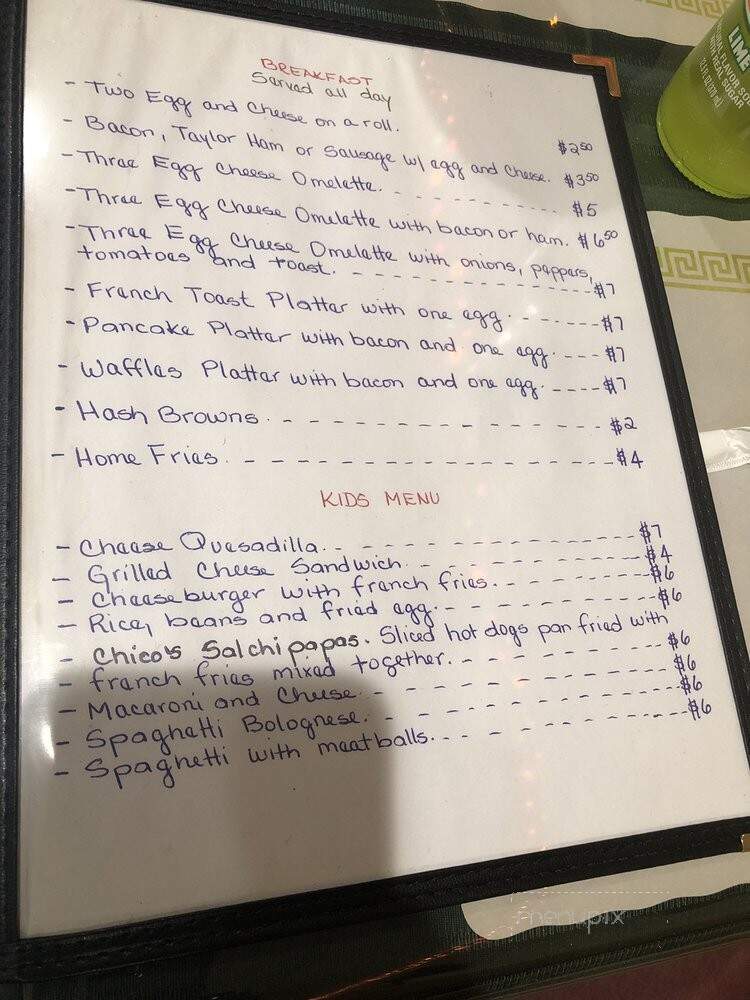 BREAKFAST
Served all day
- Two Egg and Cheese on a roll. $2⁵⁰
- Bacon, Taylor Ham or Sausage w/ egg and Cheese. $3⁵⁰
- Three Egg Cheese Omelette. - - - - - - - - - - - $5
- Three Egg Cheese Omelette with bacon or ham. $6⁵⁰
- Three Egg Cheese Omelette with onions, peppers,
tomatoes and toast. - - - - - - - - - - - - - - - $7
- French Toast Platter with one egg. - - - - - - $7
- Pancake Platter with bacon and one egg. - - - $7
- Waffles Platter with bacon and one egg. - - - - $7
- Hash Browns. - - - - - - - - - - - - - - - $2
- Home Fries. - - - - - - - - - - - - - - - - $4
KIDS MENU
- Cheese Quesadilla. - - - - - - - - - - - - - - $7
- Grilled Cheese Sandwich. - - - - - - - - - - $4
- Cheeseburger with french fries. - - - - - - - $6
- Rice, beans and fried egg. - - - - - - - - - $6
- Chico's Salchipapas. Sliced hot dogs pan fried with
- french fries mixed together. - - - - - - - - $6
- Macaroni and Cheese - - - - - - - - - - - $6
- Spaghetti Bolognese. - - - - - - - - - - - $6
- Spaghetti with meatballs. - - - - - - - - - $6
LIME
REAL SUGAR
menupix